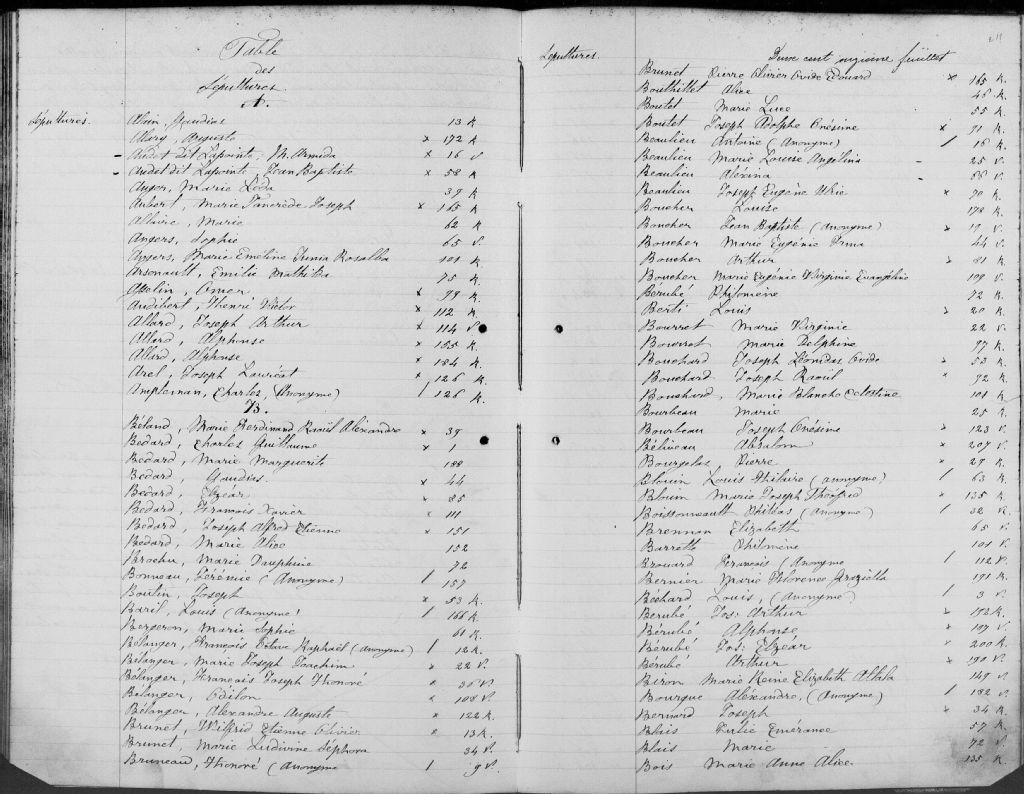 Table
des
Sépultures.
A.
Sépultures.
Alain, Gaudias 13 R.
Alary, Auguste x 172 R
Audet dit Lapointe, M. Armida x 16 V
Audet dit Lapointe, Jean Baptiste x 58 R
Anger, Marie Léda 39 R
Aubert, Marie Tancrède Joseph x 165 R
Allaire, Marie 62 R
Angers, Sophie 65 V.
Angers, Marie Emeline Junia Rosalba 101 R.
Arsenault, Emilie Mathilda 75 R.
Asselin, Omer x 99 R.
Audibert, Henri Victor x 112 R.
Allard, Joseph Arthur x 114 V
Allard, Alphonse x 155 R.
Allard, Alphonse x 184 R.
Arel, Joseph Lauréat x 126 R.
Ampleman, Charles, (Anonyme) / 126 R.
B.
Béland, Marie Ferdinand Raoül Alexandre x 39
Bedard, Charles Guillaume x 1
Bedard, Marie Marguerite 188
Bedard, Gaudias. x 44
Bedard, Elzéar x 85
Bedard, François Xavier x 111
Bedard, Joseph Alfred Etienne x 151
Bedard, Marie Alice 152
Brochu, Marie Dauphine 72
Bonneau, Jérémie (Anonyme) / 157
Boutin, Joseph x 53 R.
Baril, Louis (Anonyme) / 166 R.
Bergeron, Marie Sophie 61 R.
Bélanger, François Octave Raphaël (anonyme) / 12 R.
Bélanger, Marie Joseph Joachim x 22 V.
Bélanger, François Joseph Honoré x 36 V.
Bélanger, Odilon x 108 V.
Bélanger, Alexandre Auguste x 128 R.
Brunet, Wilfrid Etienne Olivier x 13 R.
Brunet, Marie Ludivine Séphora 34 V.
Bruneau, Honoré (Anonyme / 9 V.
211
Sépultures. Deux cent onzième feuillet
Brunet Pierre Olivier Ovide Edouard x 165 R.
Bouthillet Alice 46 R.
Boutet Marie Luce 55 R.
Boutet Joseph Adolphe Onésime x 71 R.
Beaulieu Antoine (Anonyme) / 16 R.
Beaulieu Marie Louise Angélina 25 V.
Beaulieu Alexina 56 V.
Beaulieu Joseph Eugène Uric x 70 R.
Boucher Louise 178 R.
Boucher Jean Baptiste (Anonyme) 19 V.
Boucher Marie Eugénie Irma 44 V.
Boucher Arthur x 81 R.
Boucher Marie Eugénie Virginie Evangéline 109 V.
Bérubé Philomène 72 R.
Berti Louis x 20 R.
Bourret Marie Virginie 22 V.
Bourret Marie Delphine 97 R.
Bouchard Joseph Léonidas Ovide x 53 R.
Bouchard Joseph Raoül x 92 R.
Bouchard, Marie Blanche Celestine 101 R
Bourbeau Marie 25 R.
Bourbeau Joseph Onésime x 123 V.
Béliveau Absalom x 207 V.
Bourgelas Pierre x 29 R.
Blouin Louis Hilaire (anonyme) / 63 R.
Blouin Marie Joseph Théofrid x 135 R.
Boissonneault Philéas (Anonyme) / 32 R.
Brennan Elizabeth 65 V.
Barrett Philomène 101 V.
Brouard François (Anonyme / 112 V.
Bernier Marie Florence Graziella 191 R.
Béchard Louis, (Anonyme) / 3 V.
Bérubé Jos: Arthur x 172 R.
Bérubé Alphonse x 197 V.
Bérubé Jos: Elzéar x 200 R.
Bérubé Arthur x 190 V.
Biron Marie Reine Elizabeth Attala 149 V.
Bourque Aléxandre, (Anonyme) / 182 V.
Bernard Joseph x 34 R.
Blais Julie Emérance 57 R.
Blais Marie 72 V.
Bois Marie Anne Alice 135 R.